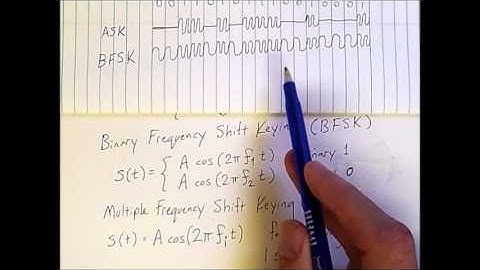 ASK
BFSK
Binary Frequency Shift Keying (BFSK)
s(t) = { A cos(2π f₁ t) binary 1
A cos(2π f₂ t) 0
Multiple Frequency Shift Keying
s(t) = A cos(2π fᵢ t)